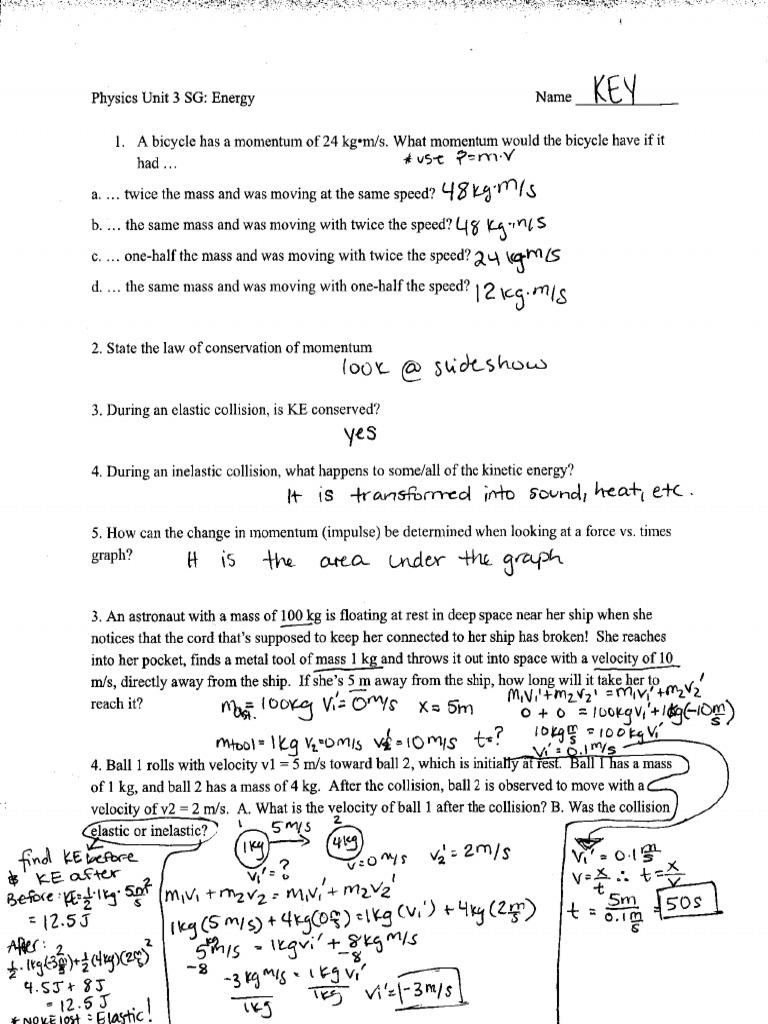 Physics Unit 3 SG: Energy Name KEY
1. A bicycle has a momentum of 24 kg•m/s. What momentum would the bicycle have if it
had … * use P=m·v
a. … twice the mass and was moving at the same speed? 48kg·m/s
b. … the same mass and was moving with twice the speed? 48 kg·m/s
c. … one-half the mass and was moving with twice the speed? 24 kg·m/s
d. … the same mass and was moving with one-half the speed? 12kg·m/s
2. State the law of conservation of momentum
look @ slideshow
3. During an elastic collision, is KE conserved?
yes
4. During an inelastic collision, what happens to some/all of the kinetic energy?
It is transformed into sound, heat, etc.
5. How can the change in momentum (impulse) be determined when looking at a force vs. times
graph? It is the area under the graph
3. An astronaut with a mass of 100 kg is floating at rest in deep space near her ship when she
notices that the cord that's supposed to keep her connected to her ship has broken! She reaches
into her pocket, finds a metal tool of mass 1 kg and throws it out into space with a velocity of 10
m/s, directly away from the ship. If she's 5 m away from the ship, how long will it take her to
reach it?
mast.=100kg Vi'=0m/s x=5m
mtool=1kg V2=0m/s V2'=10m/s t=?
M1V1'+M2V2'=M1V1'+M2V2'
0+0=100kgV1'+1kg(-10m/s)
10kg m/s=100kgV1'
V1'=0.1m/s
4. Ball 1 rolls with velocity v1 = 5 m/s toward ball 2, which is initially at rest. Ball 1 has a mass
of 1 kg, and ball 2 has a mass of 4 kg. After the collision, ball 2 is observed to move with a
velocity of v2 = 2 m/s. A. What is the velocity of ball 1 after the collision? B. Was the collision
elastic or inelastic?
find KE before
& KE after
Before: KE=½·1kg·5m/s²
= 12.5J
After:
½·1kg(-3m/s)²+½(4kg)(2m/s)²
4.5J + 8J
= 12.5J
* NO KE lost = Elastic!
1 5m/s 2
1kg 4kg
V1'=? V=0m/s V2'=2m/s
M1V1+M2V2=M1V1'+M2V2'
1kg(5m/s)+4kg(0m/s)=1kg(V1')+4kg(2m/s)
5kg m/s=1kgV1'+8kg m/s
-8 -8
-3kg m/s=1kgV1'
1kg 1kg V1'=-3m/s
V1'=0.1m/s
V=x/t ∴ t=x/v
t=5m/0.1m/s=50s